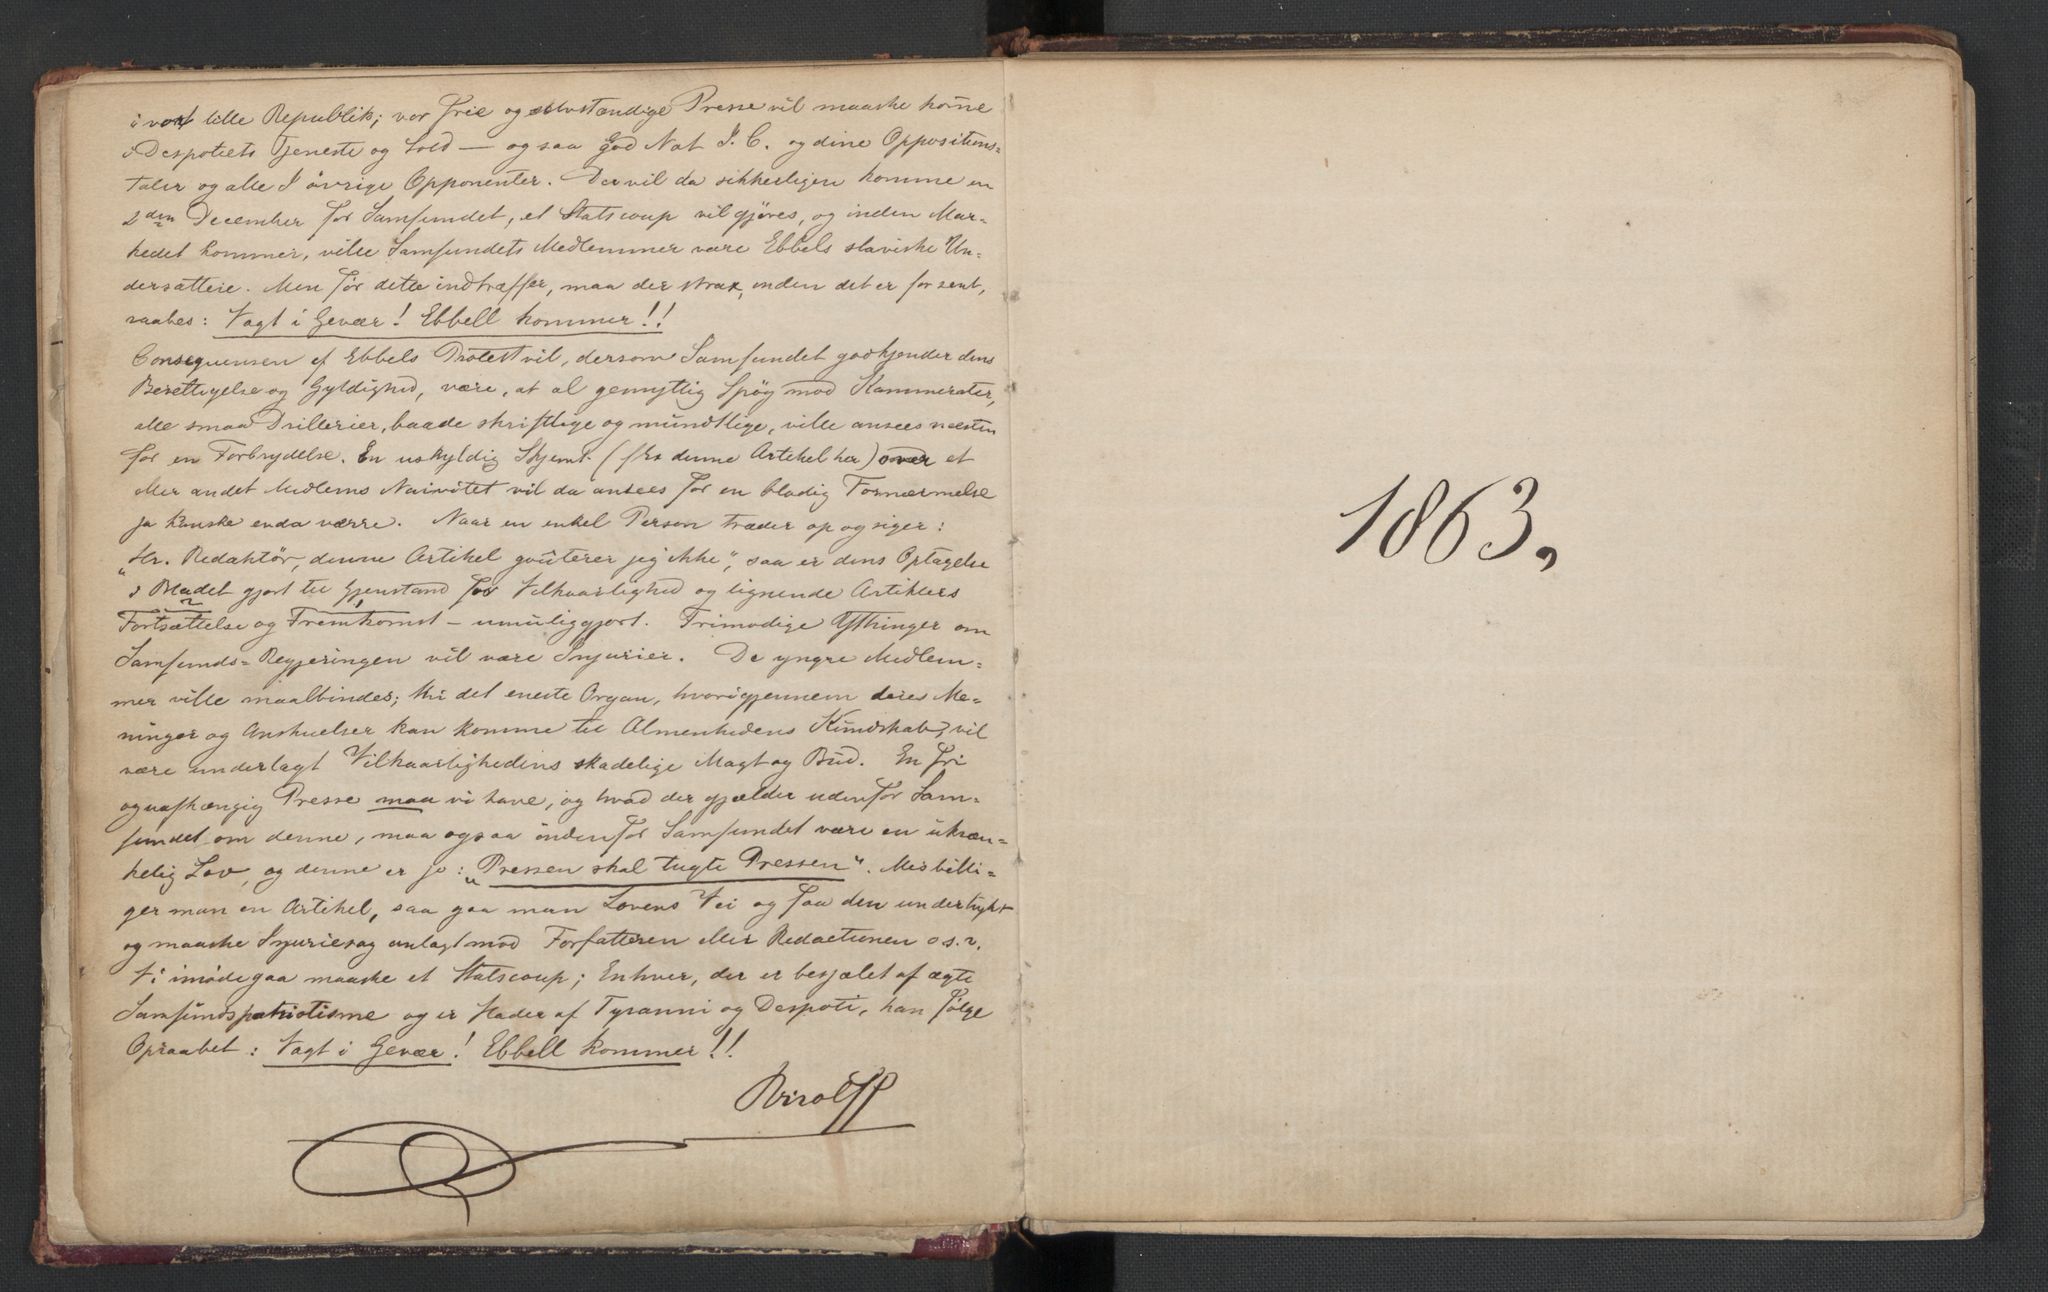 i vort lille Republik; vor frie og selvstændige Presse vil maaske kom̄e
i Despotiets Tjeneste og Sold — og saa god Nat I. C. og dine Oppositions-
taler og alle I övrige Opponenter. Der vil da sikkerligen komme en
2den December for Samfundet, et Statscoup vil gjöres, og inden Mar-
kedet kommer, ville Samfundets Medlemmer være Ebbels slaviske Un-
dersatter. Men för dette indtræffer, maa der strax, inden det er for sent,
raabes: Vagt i Gevær! Ebbell kommer!!
Consequensen af Ebbels Protest vil, dersom Samfundet godkjender dens
Berettigelse og Gyldighed, være, at al gemytlig Spög mod Kammerater,
alle smaa Drillerier, baade skriftlige og mundtlige, ville ansees næsten
for en Forbrydelse. En uskyldig Skjemt (f Ex denne Artikel her) over et
eller andet Medlems Naivitet vil da ansees for en blodig Fornærmelse
ja kanske enda værre. Naar en enkel Person træder op og siger:
„Hr. Redaktör, denne Artikel goúterer jeg ikke", saa er dens Optagelse
i Bladet gjort til Gjenstand for Vilkaarlighed og lignende Artiklers
Fortsættelse og Fremkomst – umuliggjort. Frimodige Ytringer om
Samfunds-Regjeringen vil være Injurier. De yngre Medlem-
mer ville maalbindes; thi det eneste Organ, hvorigjennem deres Me-
ninger og Anskuelser kan komme til Almenhedens Kundskab, vil
være underlagt Vilkaarlighedens skadelige Magt og Bud. En fri
og uafhængig Presse maa vi have, og hvad der gjælder udenfor Sam-
fundet om denne, maa ogsaa indenfor Samfundet være en ukræn-
kelig Lov, og denne er jo: „Pressen skal tugte Pressen". Misbilli-
ger man en Artikel, saa gaa man Lovens Vei og faa den undertrykt
og maaske Injuriesag anlagt mod Forfatteren eller Redactionen o.s.v.
Vi imödegaa maaske et Statscoup; Enhver, der er besjælet af ægte
Samfundspatriotisme og er Hader af Tyranni og Despoti, han fölge
Opraabet: Vagt i Gevær! Ebbell kommer!!
1863.